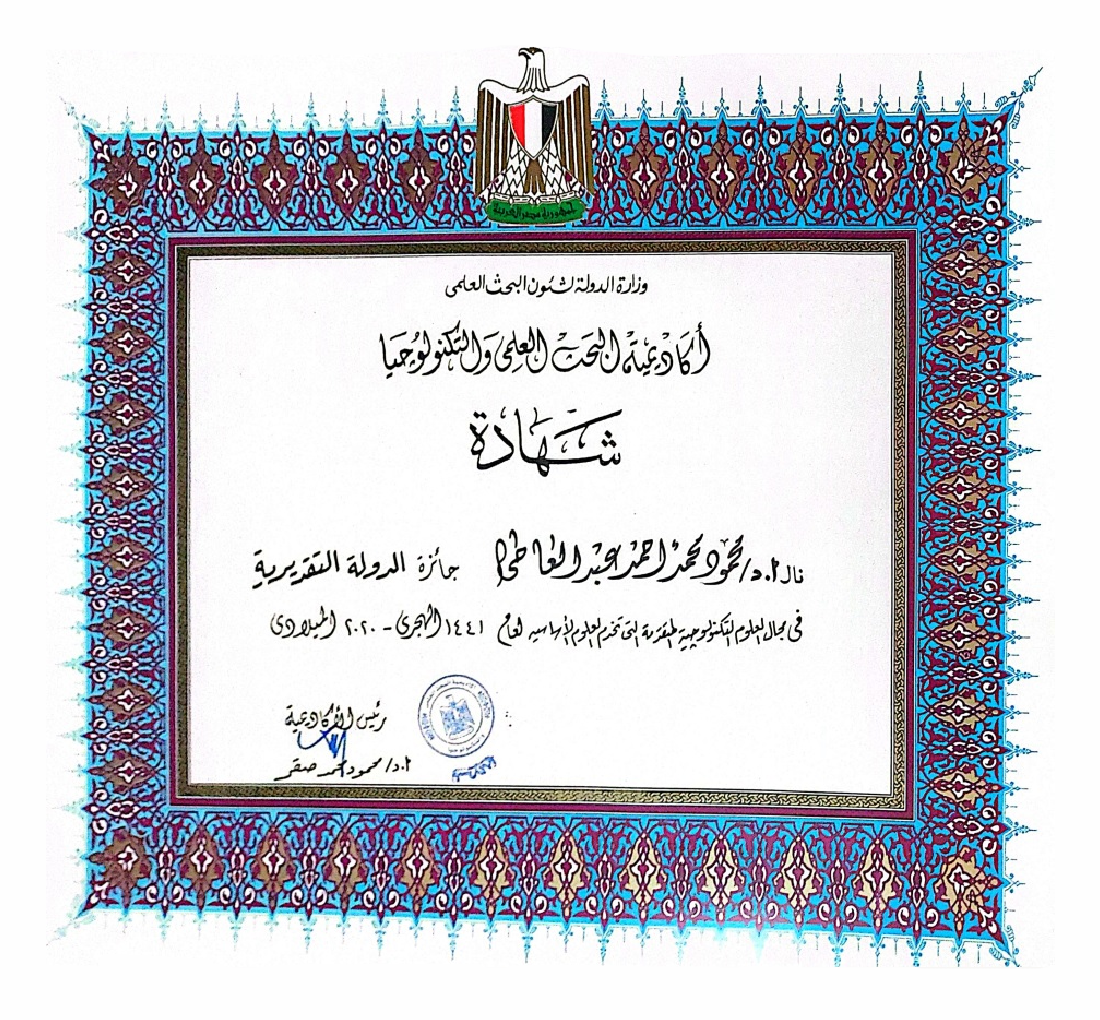 جمهورية مصر العربية
وزارة الدولة لشئون البحث العلمى
أكاديمية البحث العلمى والتكنولوجيا
شهادة
نال ا.د/ محمود محمد احمد عبد العاطى جائزة الدولة التقديرية
فى مجال العلوم التكنولوجية المتقدمة التى تخدم العلوم الأساسيه لعام ١٤٤١ الهجرى - ٢٠٢٠ الميلادى
رئيس الأكاديمية
ا.د/ محمود محمد صقر